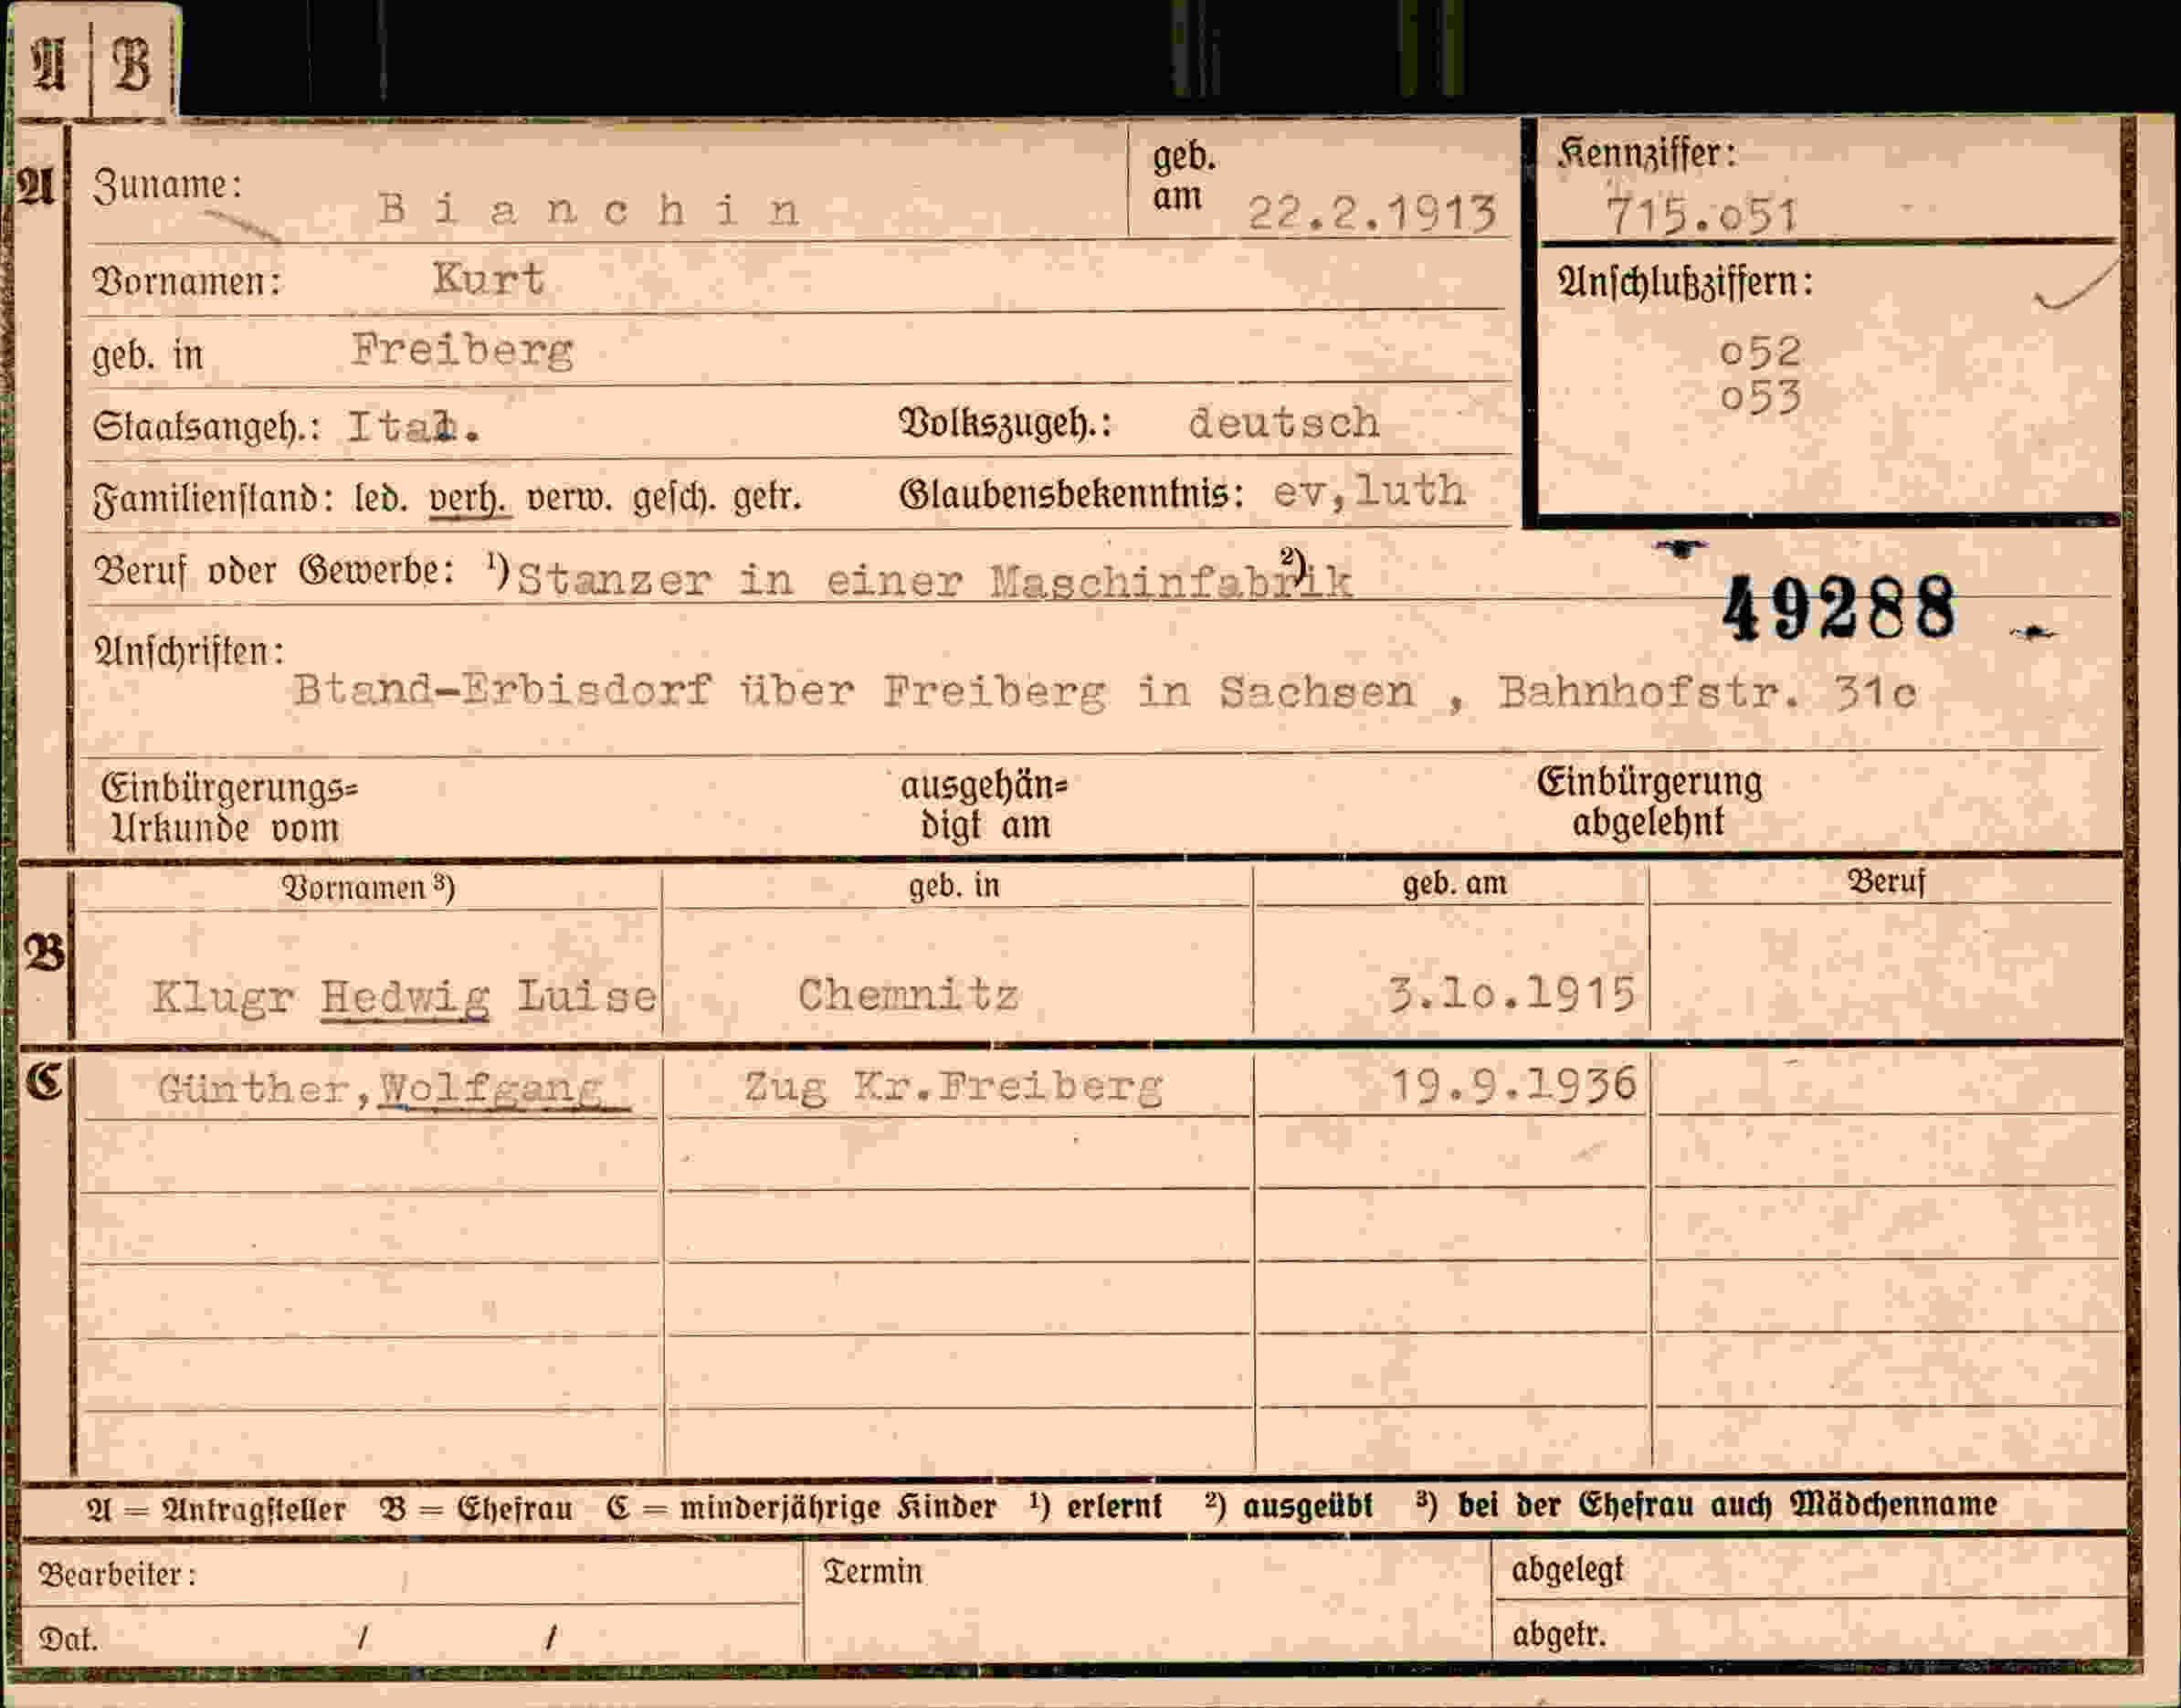 A | B
A Zuname: Bianchin geb. am 22.2.1913 Kennziffer: 715.o51
Vornamen: Kurt Anschlußziffern:
geb. in Freiberg o52
o53
Staatsangeh.: Ital. Volkszugeh.: deutsch
Familienstand: led. verh. verw. gesch. getr. Glaubensbekenntnis: ev,luth
Beruf oder Gewerbe: ¹) Stanzer in einer Maschinfabrik ²)
49288
Anschriften:
Btand-Erbisdorf über Freiberg in Sachsen , Bahnhofstr. 31c
Einbürgerungs= ausgehän= Einbürgerung
Urkunde vom digt am abgelehnt
Vornamen ³) geb. in geb. am Beruf
B Klugr Hedwig Luise Chemnitz 3.1o.1915
C Günther,Wolfgang Zug Kr.Freiberg 19.9.1936
A = Antragsteller B = Ehefrau C = minderjährige Kinder ¹) erlernt ²) ausgeübt ³) bei der Ehefrau auch Mädchenname
Bearbeiter: Termin abgelegt
Dat. / / abgetr.